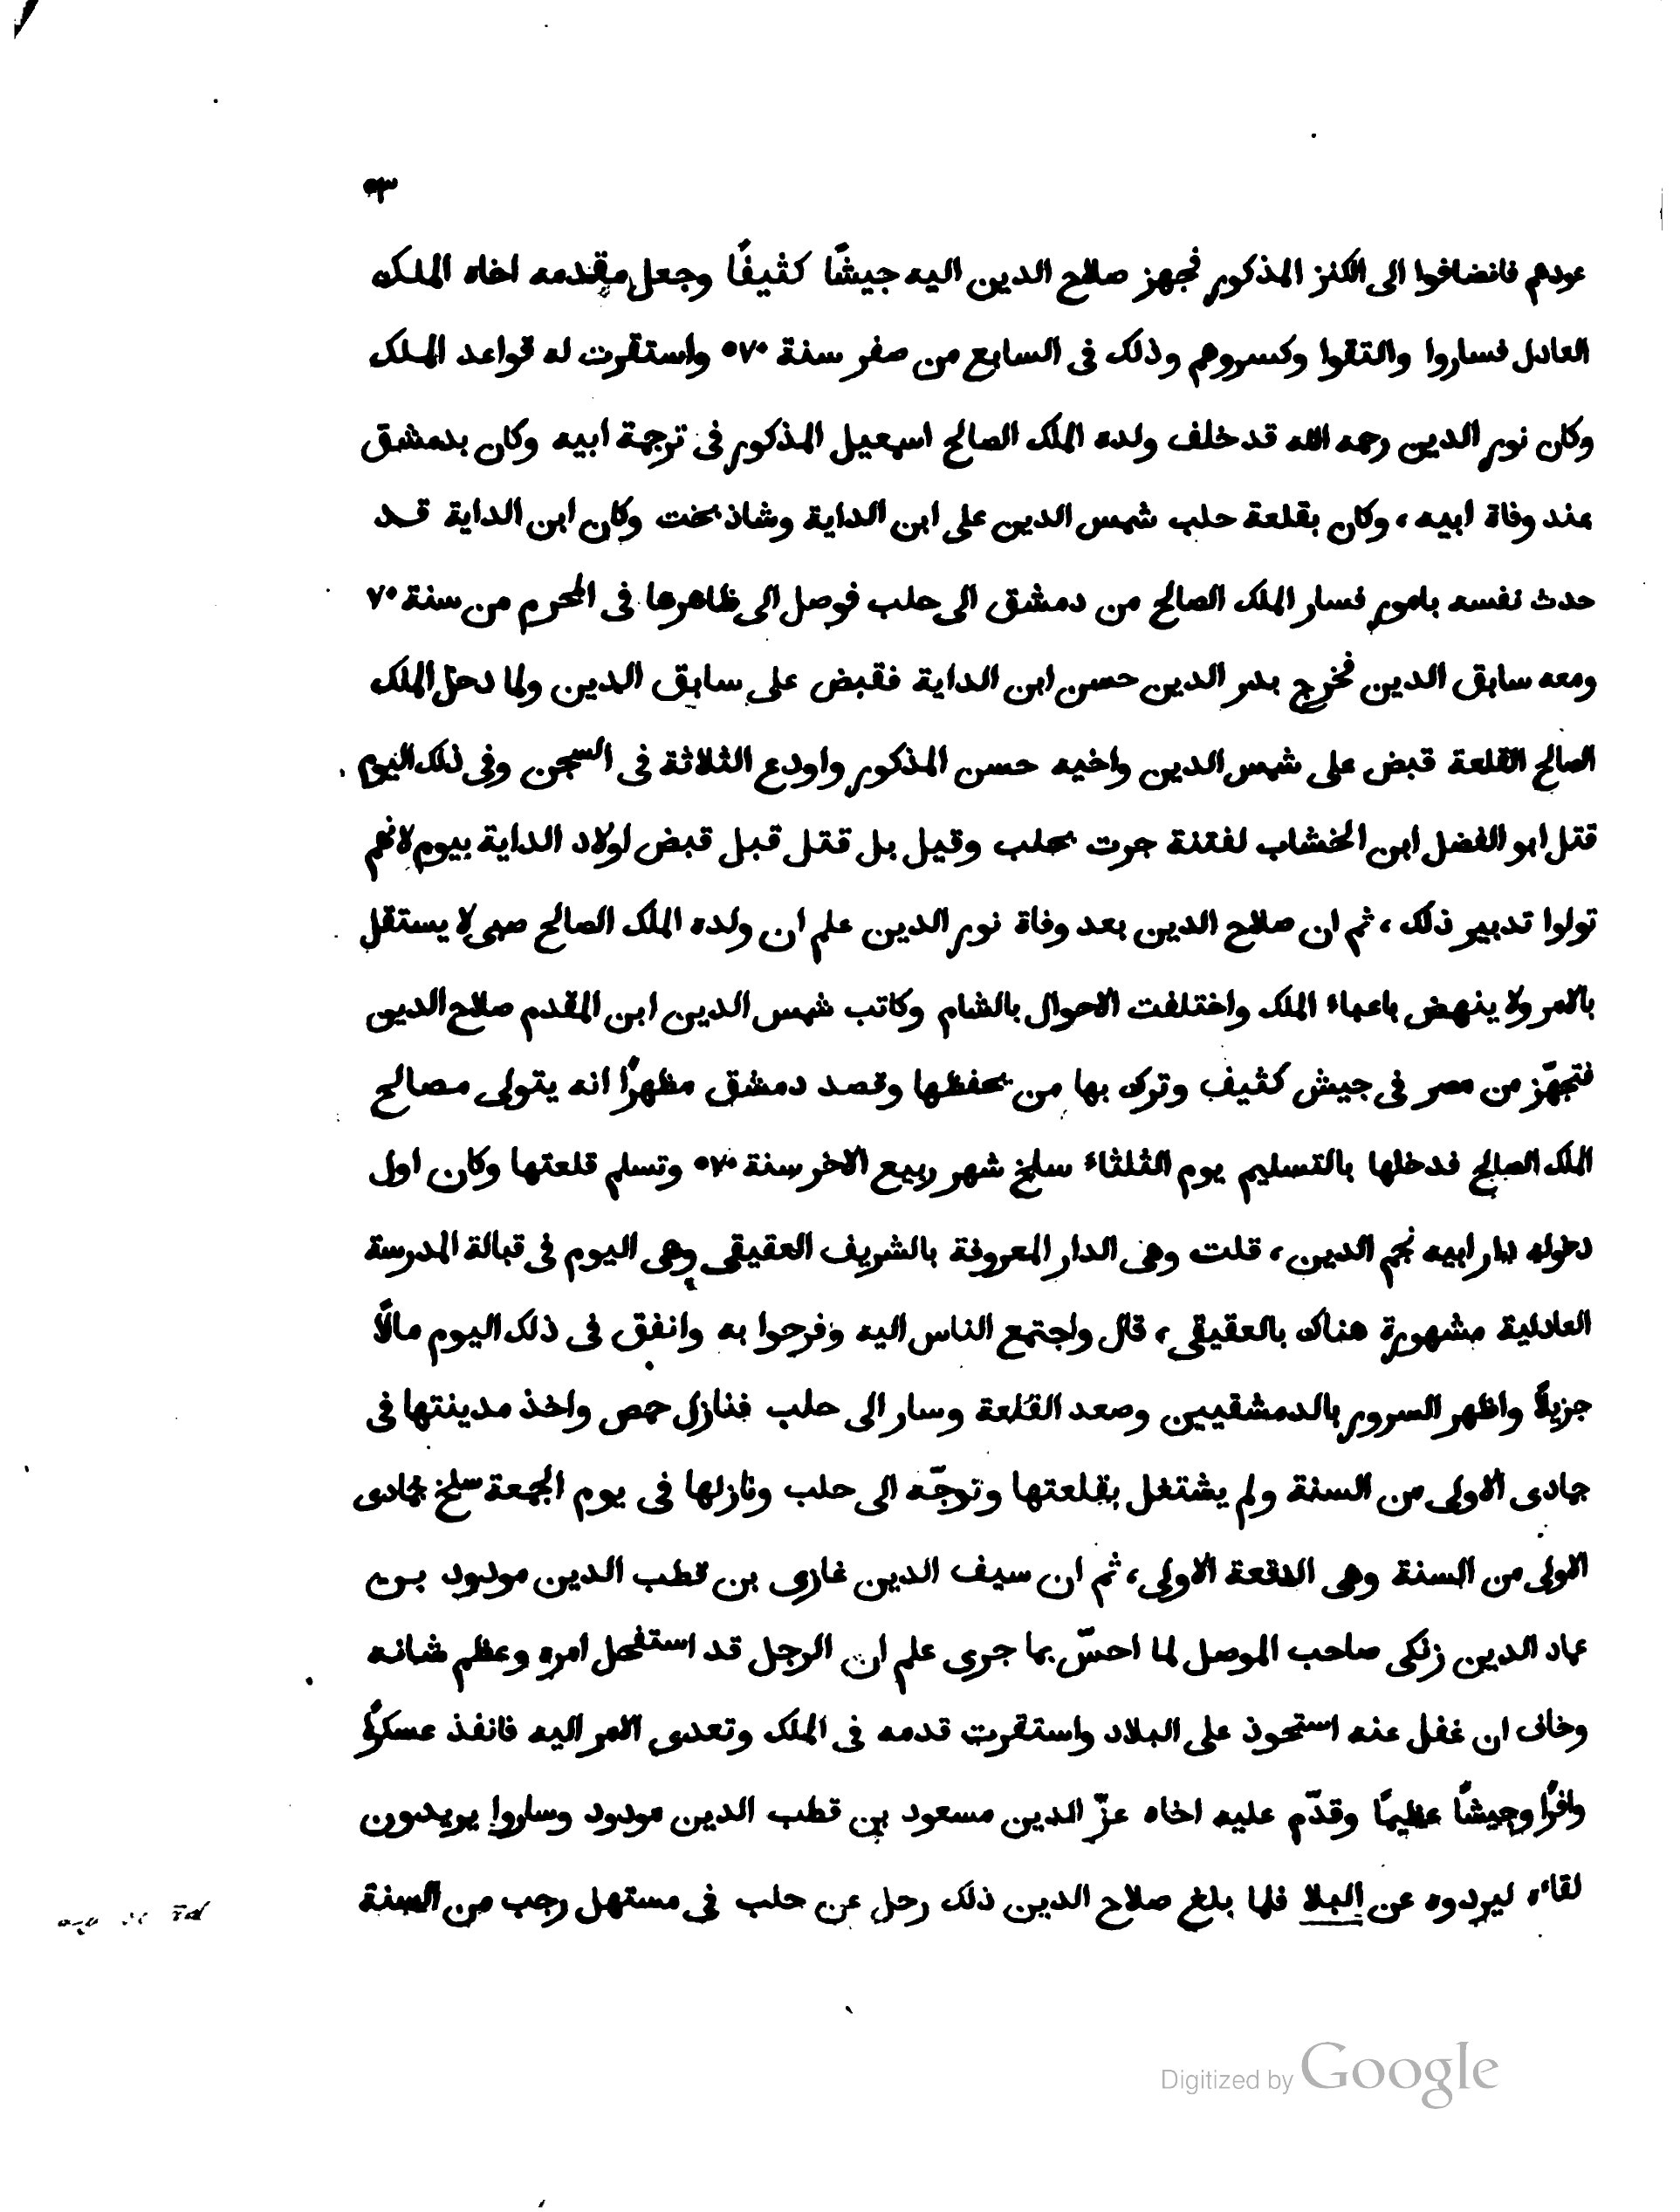 ٥٣
عودهم فانضافوا الى الكنز المذكور فجهز صلاح الدين اليه جيشًا كثيفًا وجعل مقدمه اخاه الملك
العادل فساروا والتقوا وكسروهم وذلك فى السابع من صفر سنة ٥٧٠ واستقرت له قواعد الملك
وكان نور الدين رحمه الله قد خلف ولده الملك الصالح اسمعيل المذكور فى ترجمة ابيه وكان بدمشق
عند وفاة ابيه، وكان بقلعة حلب شمس الدين على ابن الداية وشاذ بخت وكان ابن الداية قد
حدث نفسه بامور فسار الملك الصالح من دمشق الى حلب فوصل الى ظاهرها فى المحرم من سنة ٧٠
ومعه سابق الدين فخرج بدر الدين حسن ابن الداية فقبض على سابق الدين ولما دخل الملك
الصالح القلعة قبض على شمس الدين واخيه حسن المذكور واودع الثلاثة فى السجن وفى ذلك اليوم
قتل ابو الفضل ابن الخشاب لفتنة جرت بحلب وقيل بل قتل قبل قبض اولاد الداية بيوم لانهم
تولوا تدبير ذلك، ثم ان صلاح الدين بعد وفاة نور الدين علم ان ولده الملك الصالح صبى لا يستقل
بالامر ولا ينهض باعباء الملك واختلفت الاحوال بالشام وكاتب شمس الدين ابن المقدم صلاح الدين
فتجهّز من مصر فى جيش كثيف وترك بها من يحفظها وقصد دمشق مظهرًا انه يتولى مصالح
الملك الصالح فدخلها بالتسليم يوم الثلثاء سلخ شهر ربيع الاخر سنة ٥٧٠ وتسلم قلعتها وكان اول
دخوله دار ابيه نجم الدين، قلت وهى الدار المعروفة بالشريف العقيقى وهى اليوم فى قبالة المدرسة
العادلية مشهورة هناك بالعقيقى، قال واجتمع الناس اليه وفرحوا به وانفق فى ذلك اليوم مالًا
جزيلًا واظهر السرور بالدمشقيين وصعد القلعة وسار الى حلب فنازل حمص واخذ مدينتها فى
جمادى الاولى من السنة ولم يشتغل بقلعتها وتوجّه الى حلب ونازلها فى يوم الجمعة سلخ جمادى
الاولى من السنة وهى الدفعة الاولى، ثم ان سيف الدين غازى بن قطب الدين مودود بن
عماد الدين زنكى صاحب الموصل لما احسّ بما جرى علم ان الرجل قد استفحل امره وعظم شانه
وخاف ان غفل عنه استحوذ على البلاد واستقرت قدمه فى الملك وتعدى الامر اليه فانفذ عسكرًا
وافرًا وجيشًا عظيمًا وقدّم عليه اخاه عزّ الدين مسعود بن قطب الدين مودود وساروا يريدون
لقاءه ليردوه عن البلا فلما بلغ صلاح الدين ذلك رحل عن حلب فى مستهل رجب من السنة
Digitized by Google